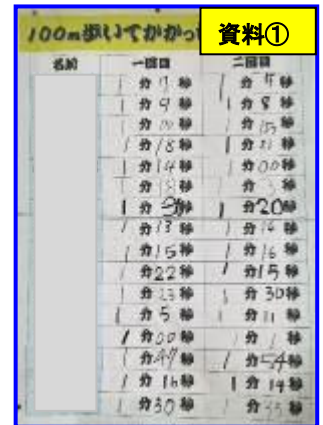 100m歩いてかかっ
資料①
名前 一回目 二回目
1分11秒 1分11秒
1分9秒 1分8秒
1分10秒 1分15秒
1分18秒 1分21秒
1分14秒 1分00秒
1分秒 1分秒
1分秒 1分20秒
1分13秒 1分16秒
1分15秒 1分16秒
1分22秒 1分15秒
1分23秒 1分30秒
1分5秒 1分11秒
1分00秒 1分1秒
1分47秒 1分54秒
1分16秒 1分14秒
1分30秒 1分秒